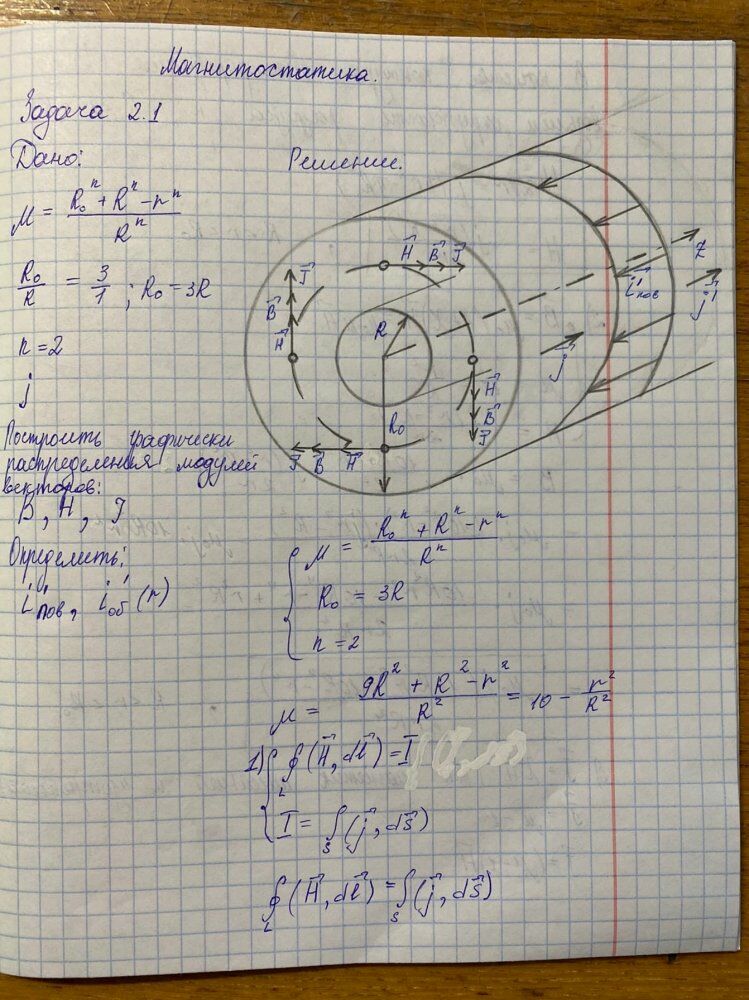 Магнитостатика.
Задача 2.1
Дано:
Решение.
μ = (R₀ⁿ + Rⁿ - rⁿ) / Rⁿ
R₀/R = 3/1 ; R₀ = 3R
n = 2
j
Построить графически
распределения модулей
векторов:
B, H, J
Определить:
i'пов, i'об (r)
H⃗ B⃗ J⃗
J⃗
B⃗
H⃗
R
R₀
H⃗
B⃗
J⃗
J⃗ B⃗ H⃗
z
i⃗'пов
j⃗'
j⃗
μ = (R₀ⁿ + Rⁿ - rⁿ) / Rⁿ
R₀ = 3R
n = 2
μ = (9R² + R² - r²) / R² = 10 - r²/R²
1) ∮L (H⃗, dl⃗) = I
I = ∫S (j⃗, ds⃗)
∮L (H⃗, dl⃗) = ∫S (j⃗, ds⃗)